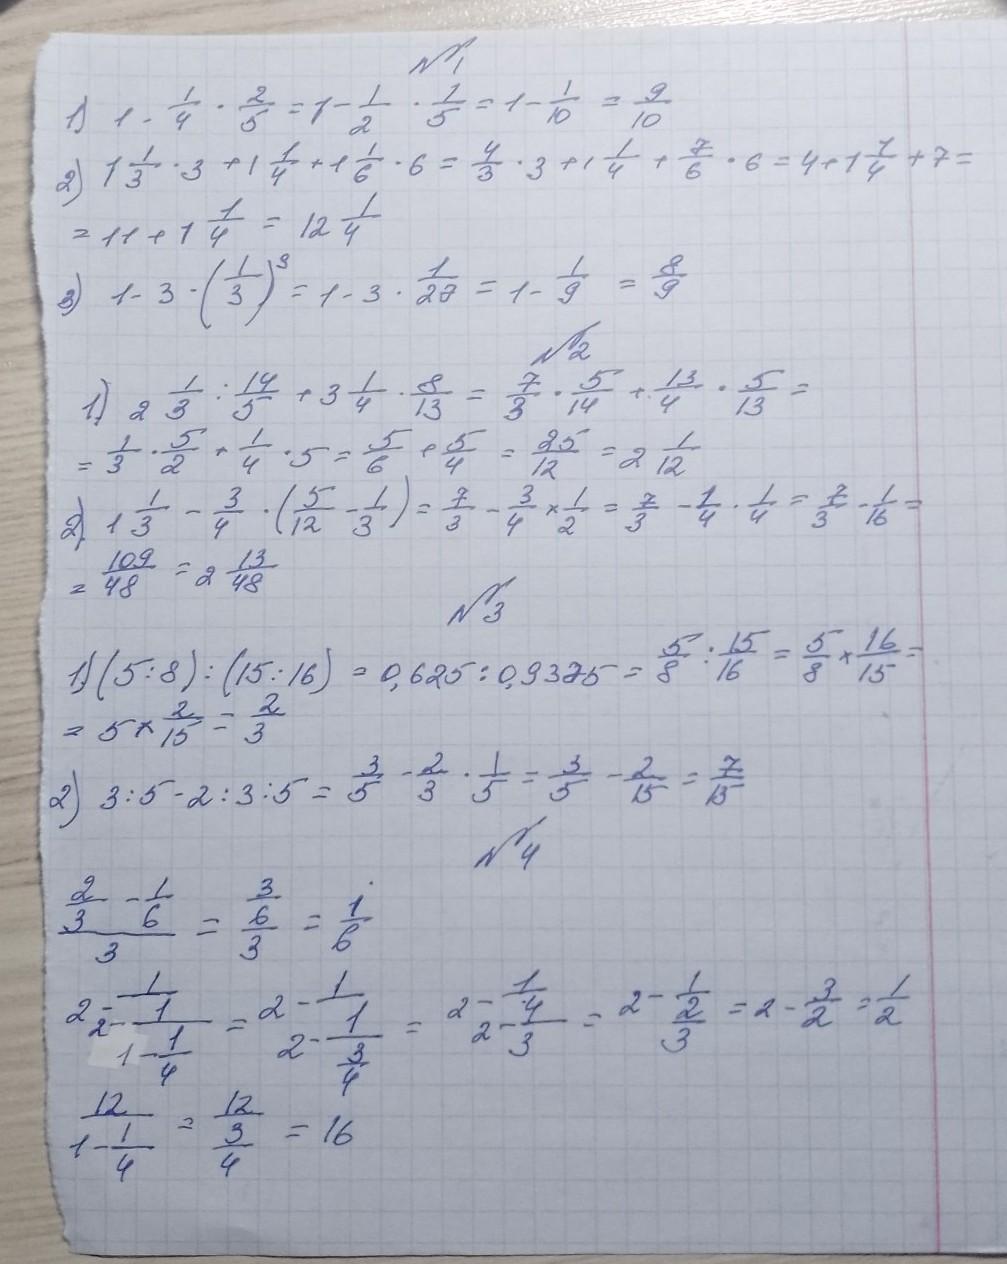 №1
1) 1 - 1/4 · 2/5 = 1 - 1/2 · 1/5 = 1 - 1/10 = 9/10
2) 1 1/3 · 3 + 1 1/4 + 1 1/6 · 6 = 4/3 · 3 + 1 1/4 + 7/6 · 6 = 4 + 1 1/4 + 7 =
= 11 + 1 1/4 = 12 1/4
3) 1 - 3 · (1/3)³ = 1 - 3 · 1/27 = 1 - 1/9 = 8/9
№2
1) 2 1/3 : 14/5 + 3 1/4 · 8/13 = 7/3 · 5/14 + 13/4 · 5/13 =
= 1/3 · 5/2 + 1/4 · 5 = 5/6 + 5/4 = 25/12 = 2 1/12
2) 1 1/3 - 3/4 · (5/12 - 1/3) = 7/3 - 3/4 × 1/2 = 7/3 - 1/4 · 1/4 = 7/3 - 1/16 =
= 109/48 = 2 13/48
№3
1) (5:8) : (15:16) = 0,625 : 0,9375 = 5/8 : 15/16 = 5/8 × 16/15 =
= 5 × 2/15 = 2/3
2) 3:5 - 2:3:5 = 3/5 - 2/3 · 1/5 = 3/5 - 2/15 = 7/15
№4
(2/3 - 1/6)/3 = (3/6)/3 = 1/6
2 - 1/(2 - 1/(1 - 1/4)) = 2 - 1/(2 - 1/(3/4)) = 2 - 1/(2 - 4/3) = 2 - 1/(2/3) = 2 - 3/2 = 1/2
12/(1 - 1/4) = 12/(3/4) = 16